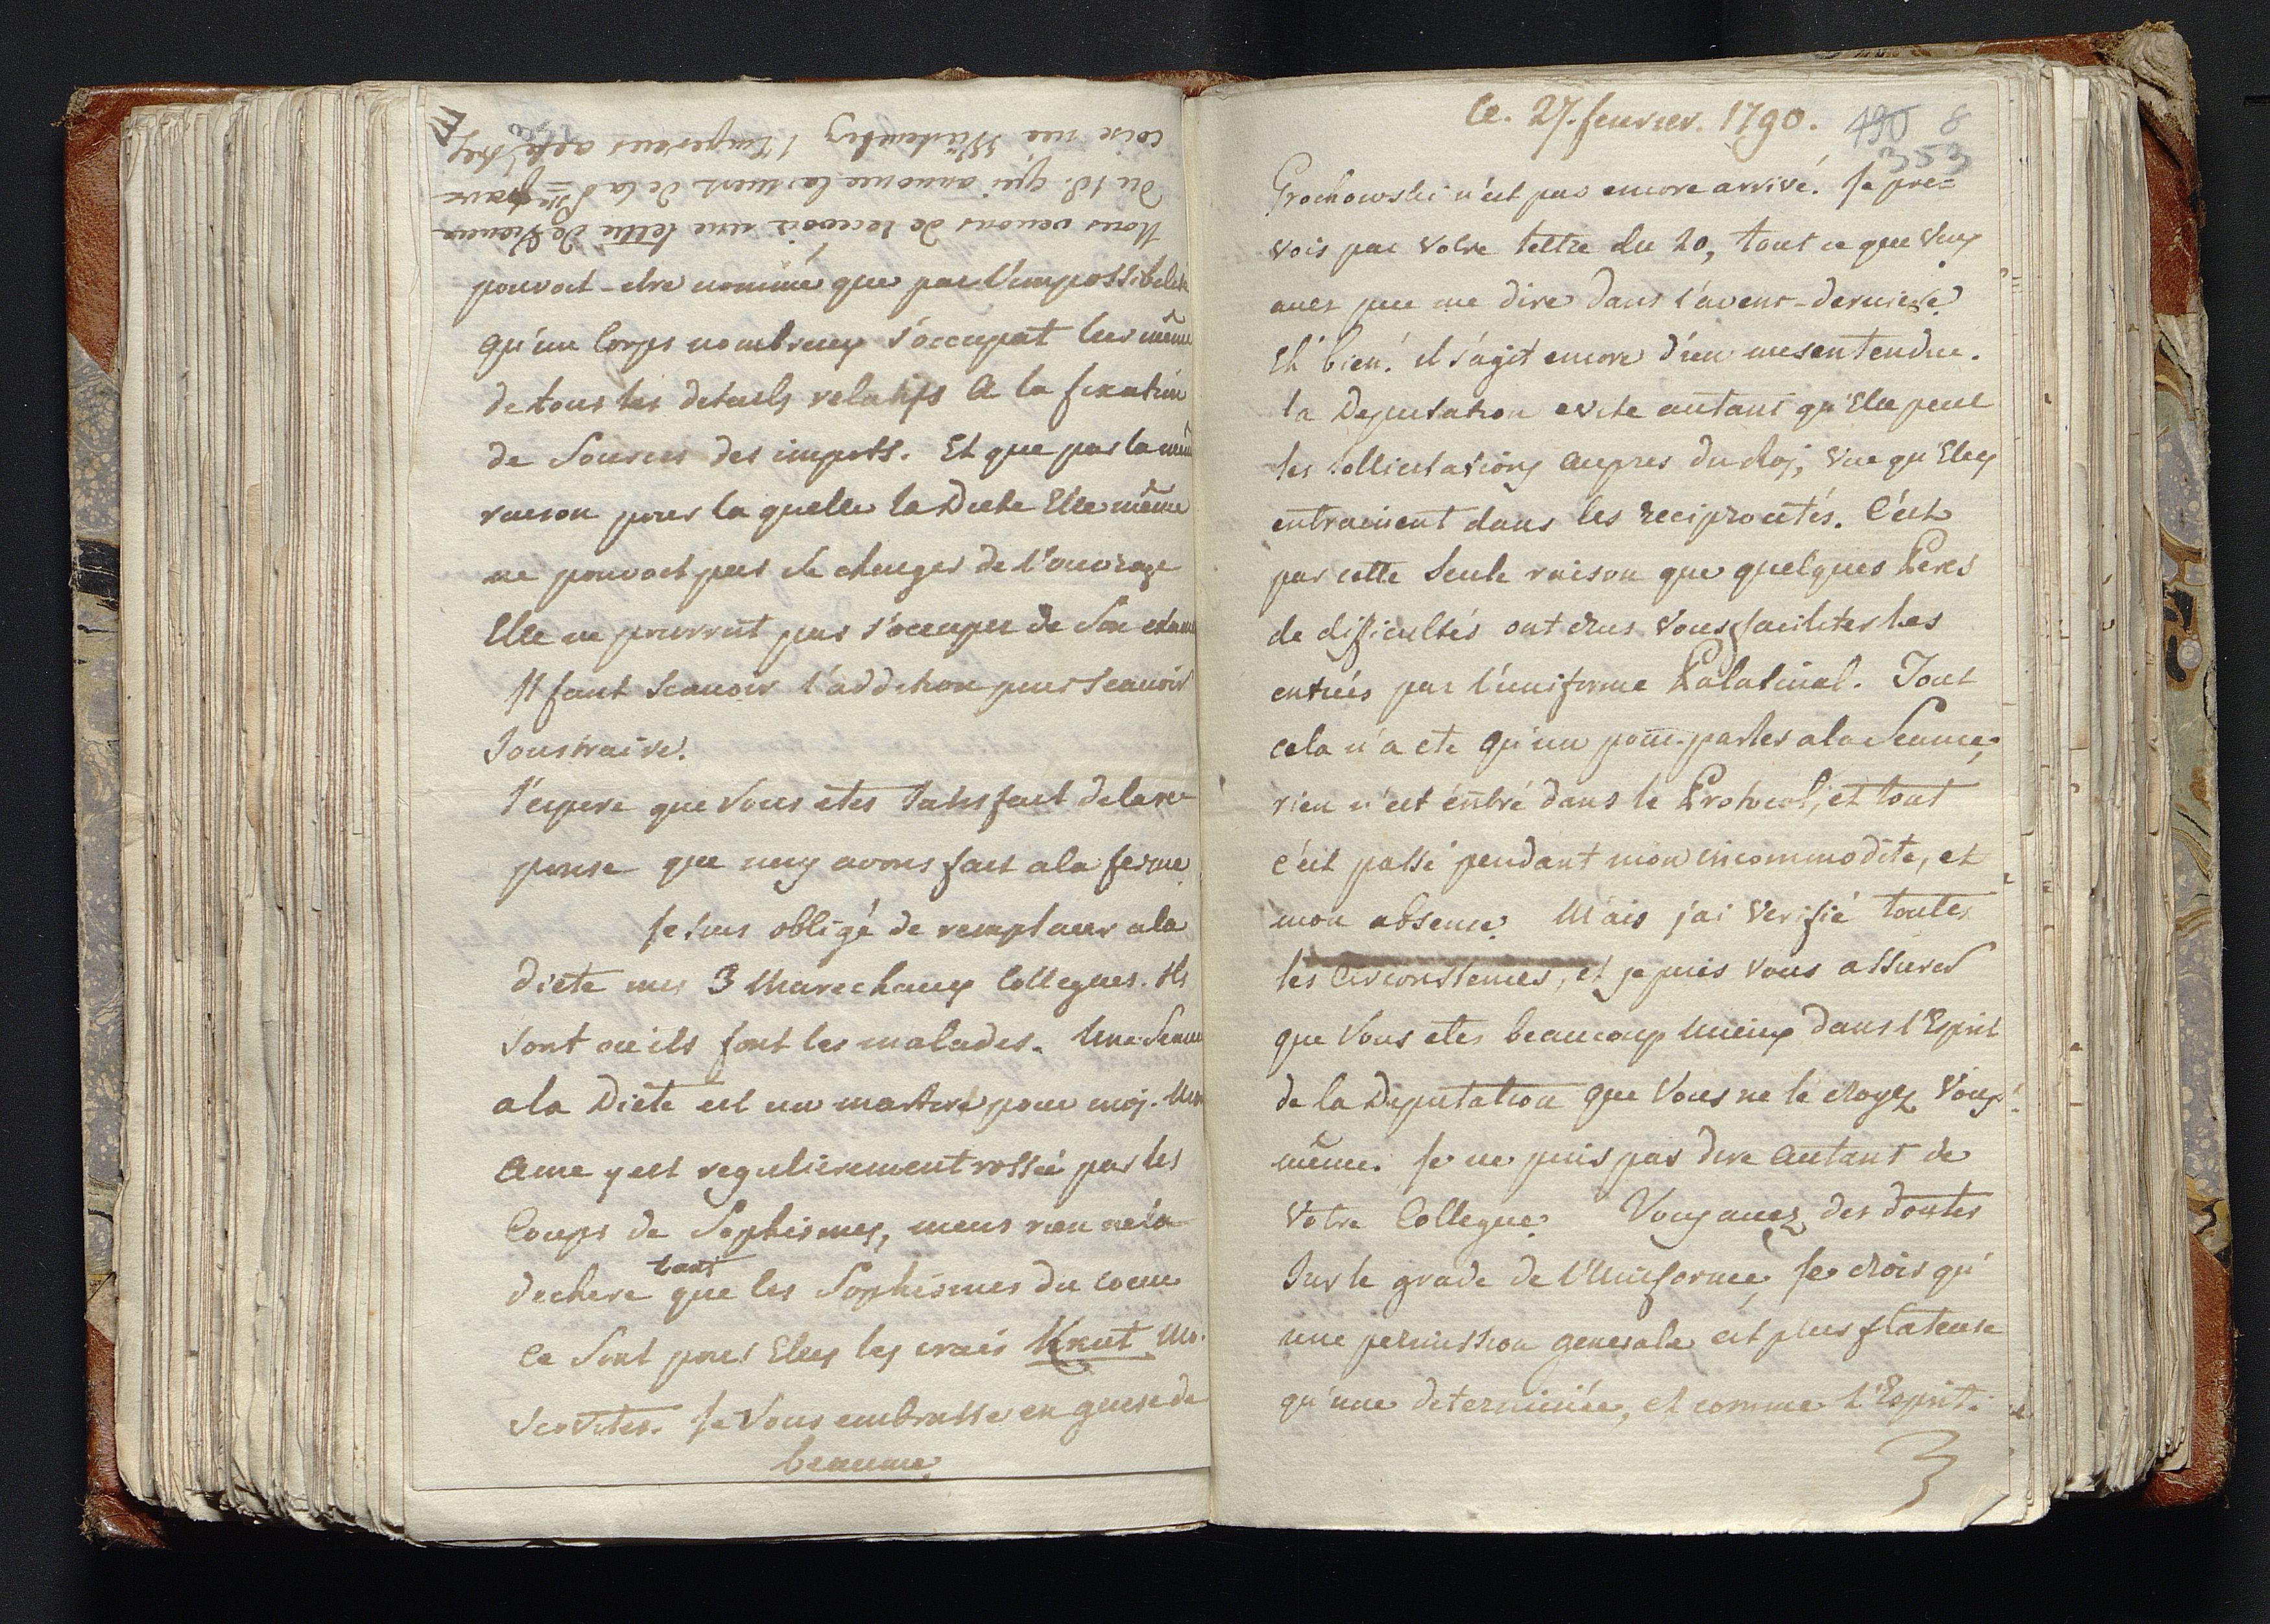 Nous venons de recevoir une lettre de Vienne
du 18. qui annonce la mort de la Psse fran-
coise nee Würtemberg l'Empereur
pouvoit-etre nommé que par l'impossibilité
qu'un Corps nombreux s'occupat lui même
de tous les details relatifs a la fixation
de Sources des impots. Et que par la même
raison pour la quelle la Diete Elle même
ne pouvoit pas se charger de l'ouvrage
Elle ne pourroit pas s'occuper de Son
Il faut Scavoir l'addition pour Scavoir
Soustraire.
J'espere que Vous etes Satisfait de la re-
ponse que nous avons fait a la ferme
Je suis obligé de remplacer a la
diete mes 3 Marechaux Collegues. Ils
Sont ou ils font les malades. Une Seance
a la Diete est un martire pour moj. Mon
Ame y est regulierement rossée par les
Coups de Sophismes, mais rien ne la
dechire tant que les Sophismes du coeur
Ce Sont pour Elles les vrais Knut Mo-
scovites. Je Vous embrasse en guise de
beaume.
Ce. 27. fevrier. 1790. 490 8
353
Grochowski n'est pas encore arrivé. Je pre=
vois par Votre lettre du 20, tout ce que Vous
avez pu me dire dans l'avant-derniere
Eh bien! il s'agit encore d'un mesentendu.
la Deputation evite autant qu'Elle peut
les Sollicitations aupres du Roj, vue qu'Elles
entrainent dans les reciprocités. C'est
par cette Seule raison que quelques Peres
de difficultés ont crus Vous faciliter les
entrées par l'uniforme Palatinal. Tout
cela n'a ete qu'un pour-parler a la Seance,
rien n'est entré dans le Protocol, et tout
c'est passé pendant mon incommodite, et
mon absence. Mais j'ai Verifié toutes
les Circonstances, et je puis Vous assurer
que Vous etes beaucoup Mieux dans l'Esprit
de la Deputation que Vous ne le croyez Vous-
même. Je ne puis pas dire autant de
Votre Collegue. Vous avez des doutes
Sur le grade de l'Uniforme, Je crois qu'
une permission generale est plus flateuse
qu'une determinée, et comme l'Esprit